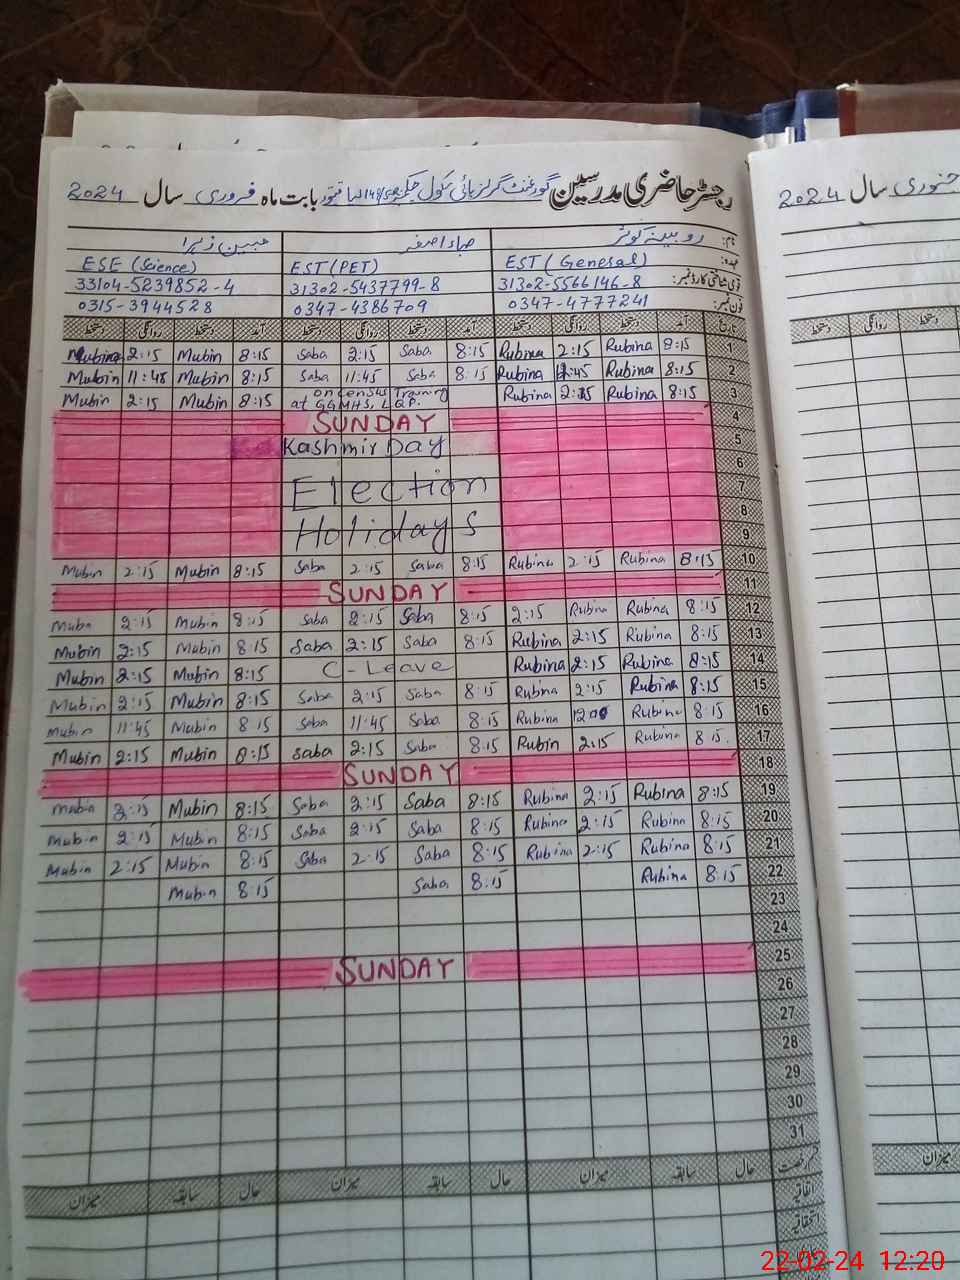 رجسٹر حاضری مدرسین گورنمنٹ گرلز ہائی سکول بابت ماہ فروری سال 2024
جنوری سال 2024
نام: روبینہ کوثر صباء اصغر مبین زہرا
عہدہ: EST (General) EST (PET) ESE (Science)
قومی شناختی کارڈ نمبر: 31302-5566146-8 31302-5437799-8 33104-5239852-4
فون نمبر: 0347-4777241 0347-4386709 0315-3944528
تاریخ آمد دستخط روانگی دستخط آمد دستخط روانگی دستخط آمد دستخط روانگی دستخط
دستخط روانگی دستخط
Mubina 2:15 Mubin 8:15 Saba 2:15 Saba 8:15 Rubina 2:15 Rubina 8:15 1
Mubin 11:45 Mubin 8:15 Saba 11:45 Saba 8:15 Rubina 12:45 Rubina 8:15 2
Mubin 2:15 Mubin 8:15 on census Training at GGMHS, L.Q.P. Rubina 2:15 Rubina 8:15 3
SUNDAY 4
Kashmir Day 5
6
Election 7
8
Holidays 9
Mubin 2:15 Mubin 8:15 Saba 2:15 Saba 8:15 Rubina 2:15 Rubina 8:15 10
SUNDAY 11
Muba 2:15 Mubin 8:15 Saba 2:15 Saba 8:15 2:15 Rubina Rubina 8:15 12
Mubin 2:15 Mubin 8:15 Saba 2:15 Saba 8:15 Rubina 2:15 Rubina 8:15 13
Mubin 2:15 Mubin 8:15 C-Leave Rubina 2:15 Rubina 8:15 14
Mubin 2:15 Mubin 8:15 Saba 2:15 Saba 8:15 Rubina 2:15 Rubina 8:15 15
Mubin 11:45 Mubin 8:15 Saba 11:45 Saba 8:15 Rubina 12:00 Rubina 8:15 16
Mubin 2:15 Mubin 8:15 Saba 2:15 Saba 8:15 Rubin 2:15 Rubina 8:15 17
SUNDAY 18
Mubin 2:15 Mubin 8:15 Saba 2:15 Saba 8:15 Rubina 2:15 Rubina 8:15 19
Mubin 2:15 Mubin 8:15 Saba 2:15 Saba 8:15 Rubina 2:15 Rubina 8:15 20
Mubin 2:15 Mubin 8:15 Saba 2:15 Saba 8:15 Rubina 2:15 Rubina 8:15 21
Mubin 8:15 Saba 8:15 Rubina 8:15 22
23
24
SUNDAY 25
26
27
28
29
30
31
قسم رخصت حال سابقہ میزان حال سابقہ میزان حال سابقہ میزان
میزان
اتفاقیہ
استحقاقیہ
22-02-24 12:20